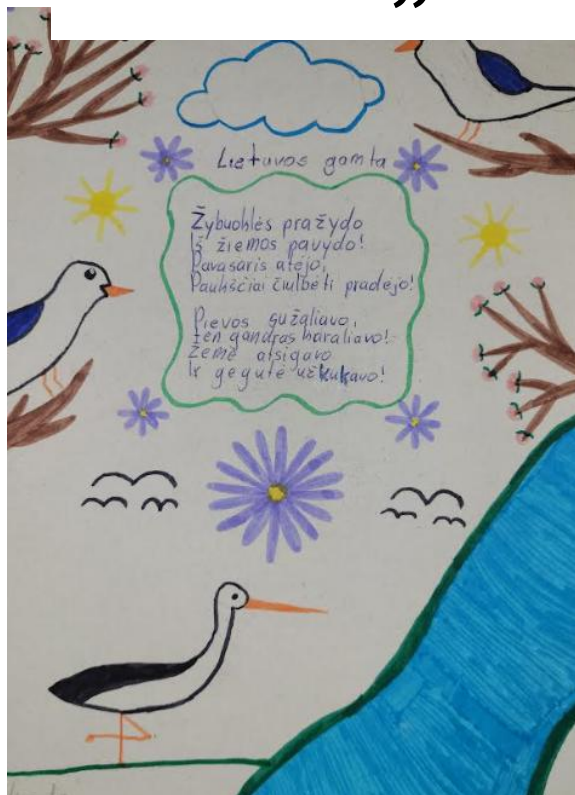 „
Lietuvos gamta
Žybuohlės pražydo
Iš žiemos pavydo!
Pavasaris atėjo,
Paukščiai čiulbėti pradėjo!
Pievos sužaliavo,
Ten gandras karaliavo!
Žemė atsigavo
Ir gegutė užkukavo!